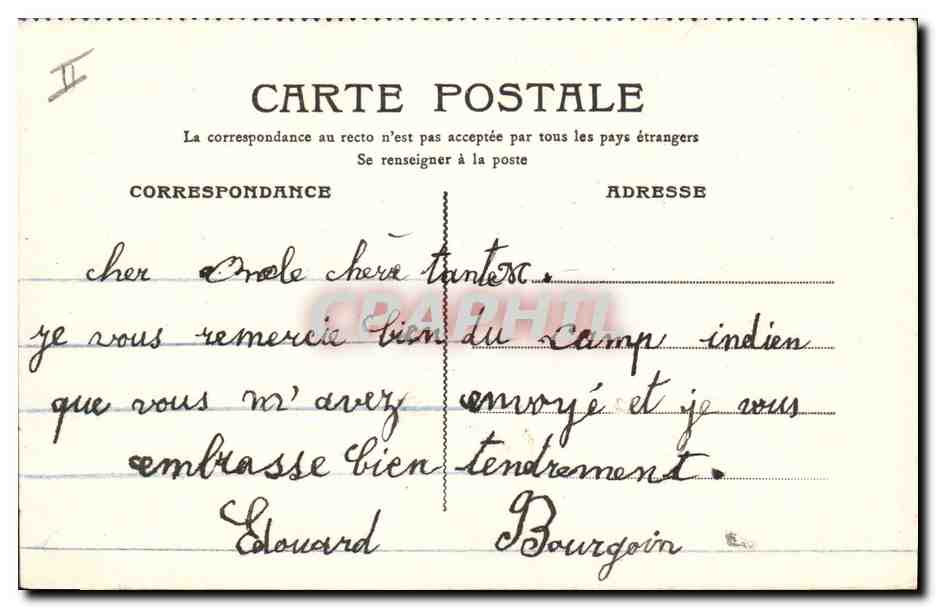 II
CARTE POSTALE
La correspondance au recto n'est pas acceptée par tous les pays étrangers
Se renseigner à la poste
CORRESPONDANCE
ADRESSE
cher Oncle chère tante.
CPAPHIL
je vous remercie bien du camp indien
que vous m'avez envoyé et je vous
embrasse bien tendrement.
Edouard Bourgoin